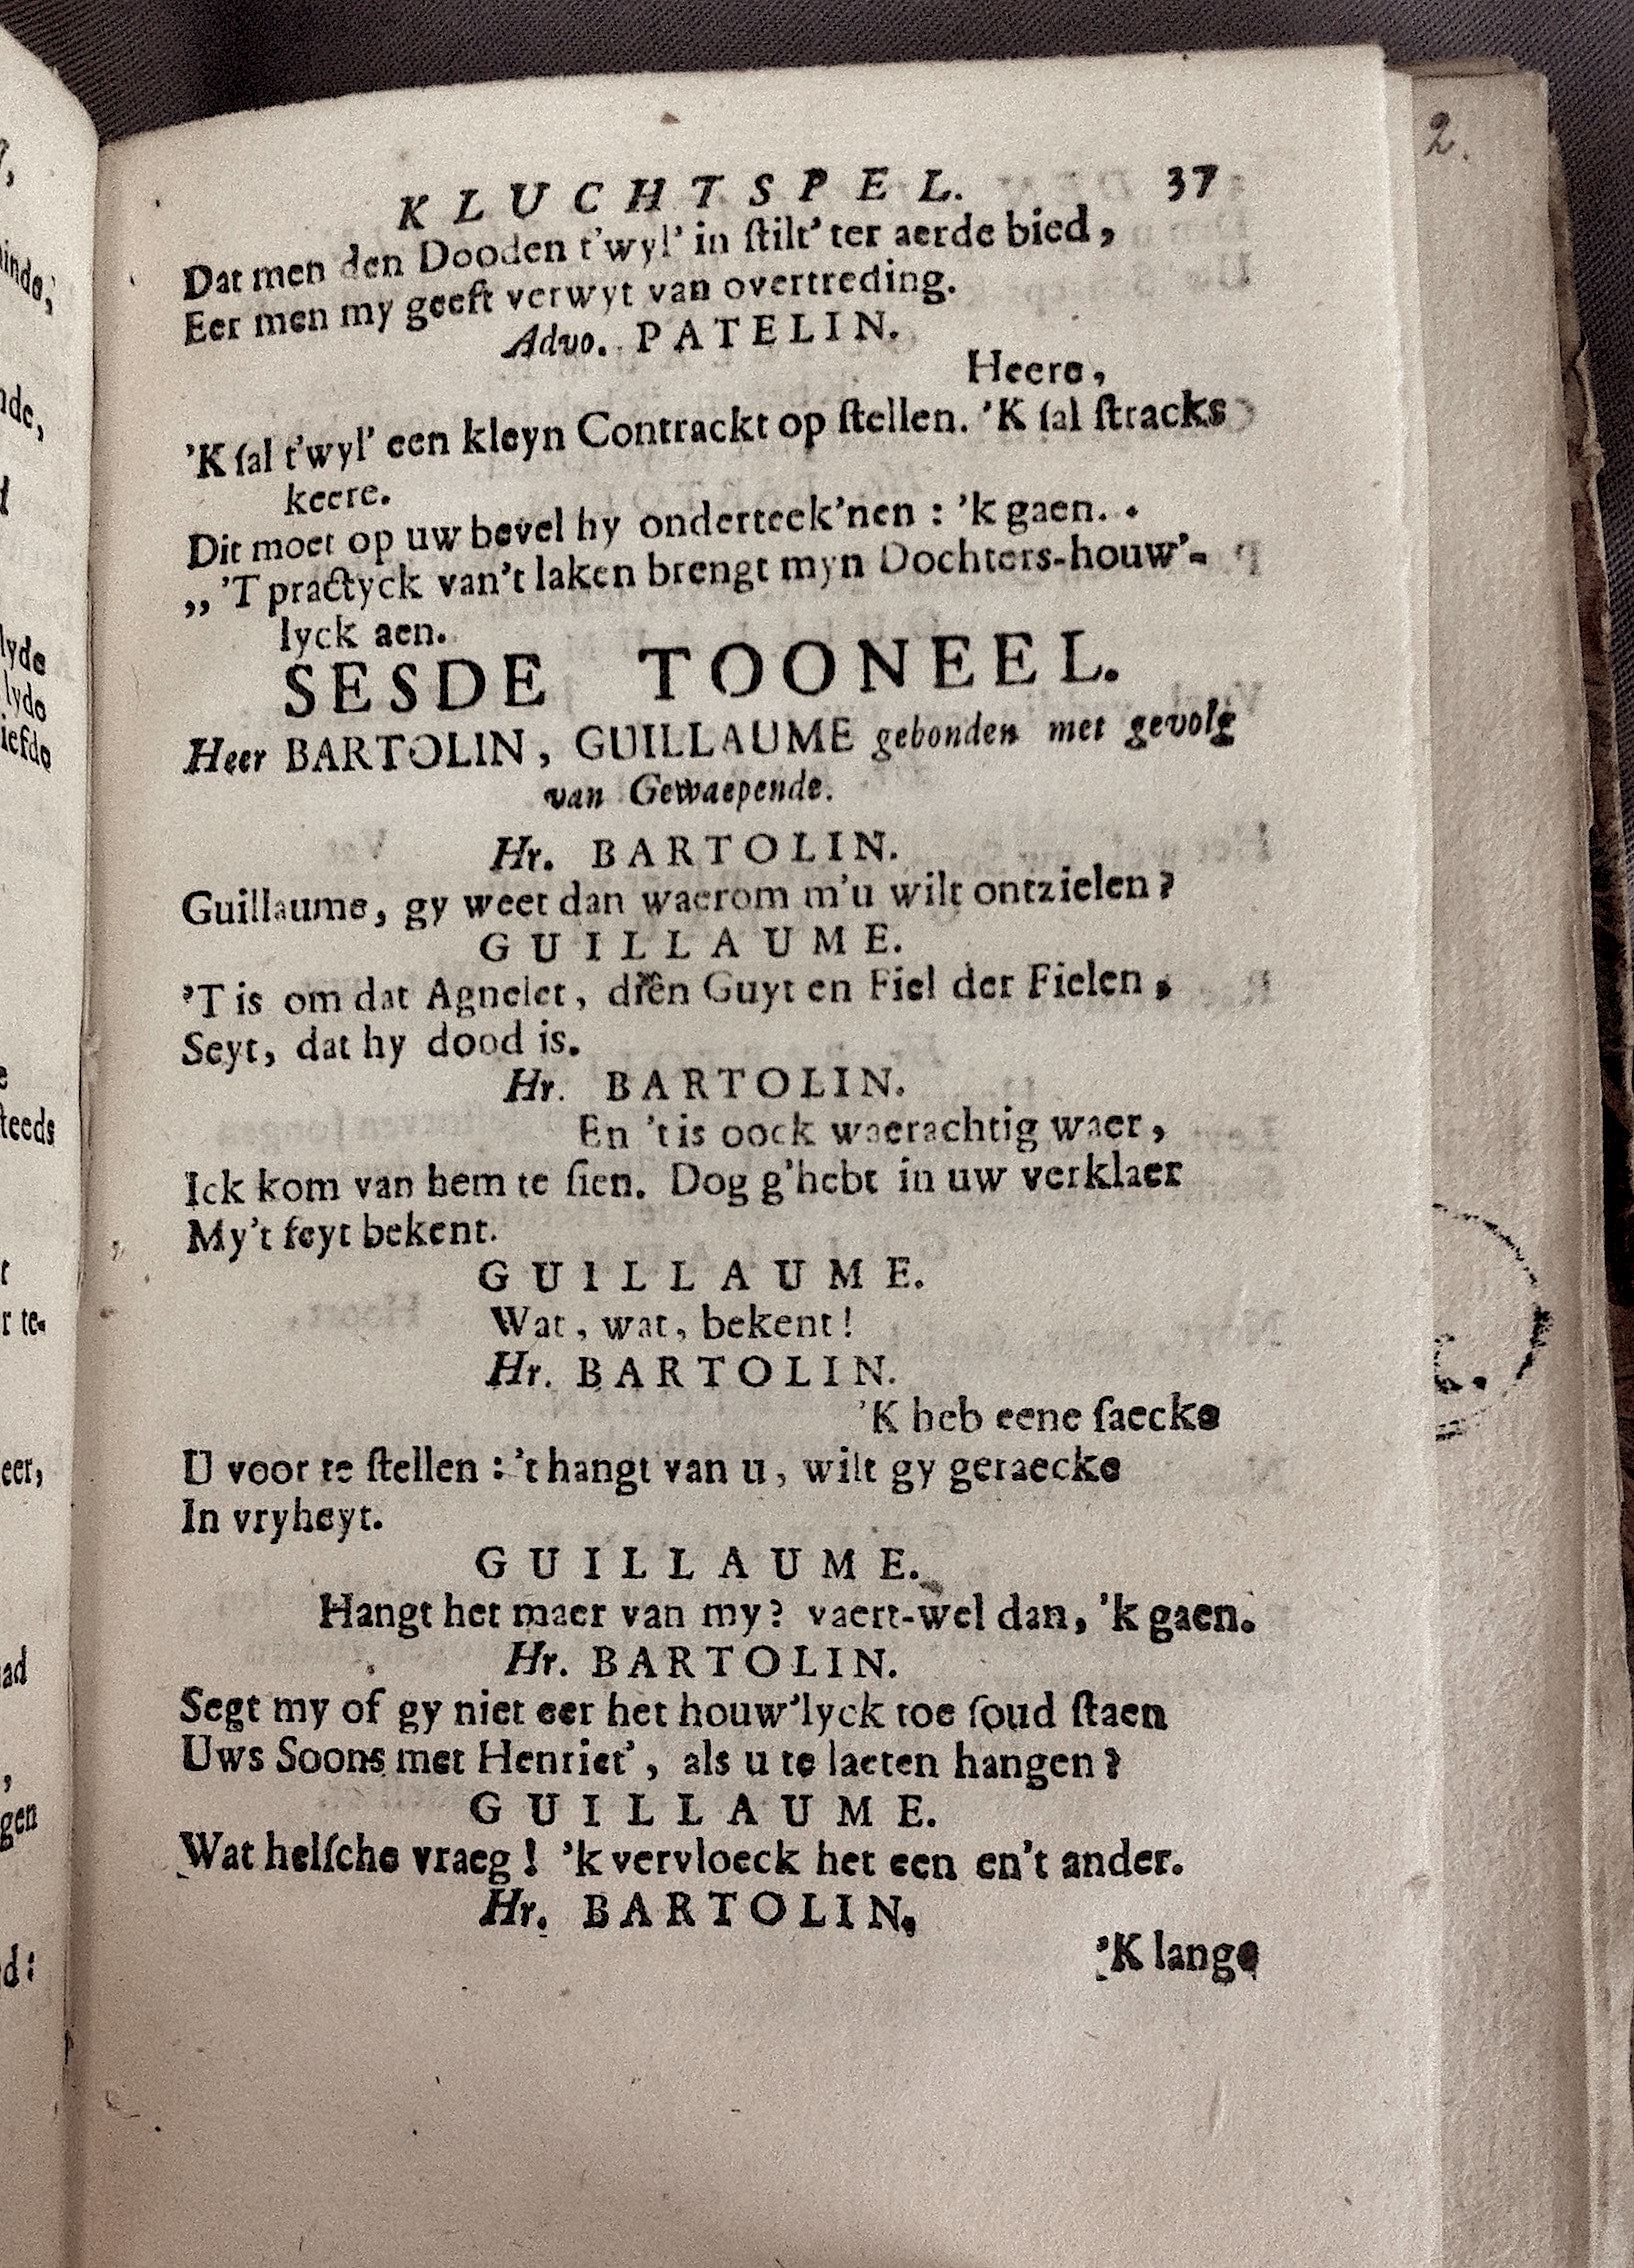 KLUCHTSPEL. 37
Dat men den Dooden t'wyl' in ſtilt' ter aerde bied,
Eer men my geeft verwyt van overtreding.
Advo. PATELIN.
Heere,
'K ſal t'wyl' een kleyn Contrackt op ſtellen. 'K ſal ſtracks
keere.
Dit moet op uw bevel hy onderteek'nen : 'k gaen. .
,, 'T practyck van't laken brengt myn Dochters-houw'-
lyck aen.
SESDE TOONEEL.
Heer BARTOLIN, GUILLAUME gebonden met gevolg
van Gewaepende.
Hr. BARTOLIN.
Guillaume, gy weet dan waerom m'u wilt ontzielen?
GUILLAUME.
'T is om dat Agnelet, diën Guyt en Fiel der Fielen,
Seyt, dat hy dood is.
Hr. BARTOLIN.
En 't is oock waerachtig waer,
Ick kom van hem te ſien. Dog g'hebt in uw verklaer
My't feyt bekent.
GUILLAUME.
Wat, wat, bekent!
Hr. BARTOLIN.
'K heb eene ſaecke
U voor te ſtellen : 't hangt van u, wilt gy geraecke
In vryheyt.
GUILLAUME.
Hangt het maer van my? vaert-wel dan, 'k gaen.
Hr. BARTOLIN.
Segt my of gy niet eer het houw'lyck toe ſoud ſtaen
Uws Soons met Henriet', als u te laeten hangen?
GUILLAUME.
Wat helſche vraeg! 'k vervloeck het een en't ander.
Hr. BARTOLIN.
'K lange
2.